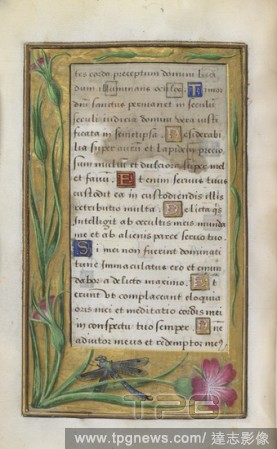 tes corda preceptum domini luci
dum illuminans oculos. Timor
dni sanctus permanet in seculum
seculi iudicia domini vera iusti
ficata in semetipsa. Desiderabi
lia super aurem et lapidem precio
sum multum et dulciora super mel
et favum. Et enim servus tuus
custodit ea in custodiendis illis
retributio multa. Delicta quis
intelligit ab occultis meis munda
me et ab alienis parce servo tuo.
Si mei non fuerint dominati
tunc immaculatus ero et emun
dabor a delicto maximo. Et
erunt ut complaceant eloquia
oris mei et meditatio cordis mei
in conspectu tuo semper. Dne
adiutor meus et redemptor me9
TPG
www.tpgnews.com/ 達志影像